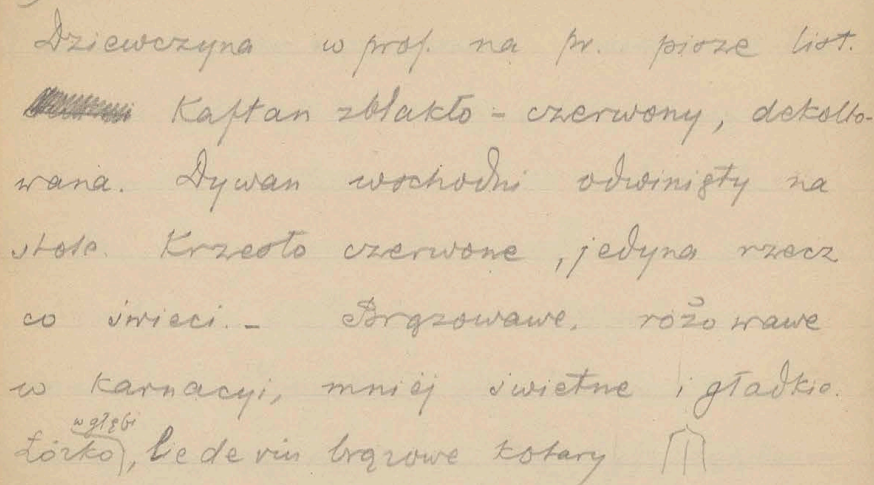 Dziewczyna w prof. na pr. pisze list.
Kaftan zbłakło – czerwony, dekolto-
wana. Dywan wschodni odwinięty na
stole. Krzesło czerwone, jedyna rzecz
co świeci. – Brązowawe, różowawe
w karnacyi, mniej świetne i gładkie.
w głębi
Łóżko, brązowe kotary